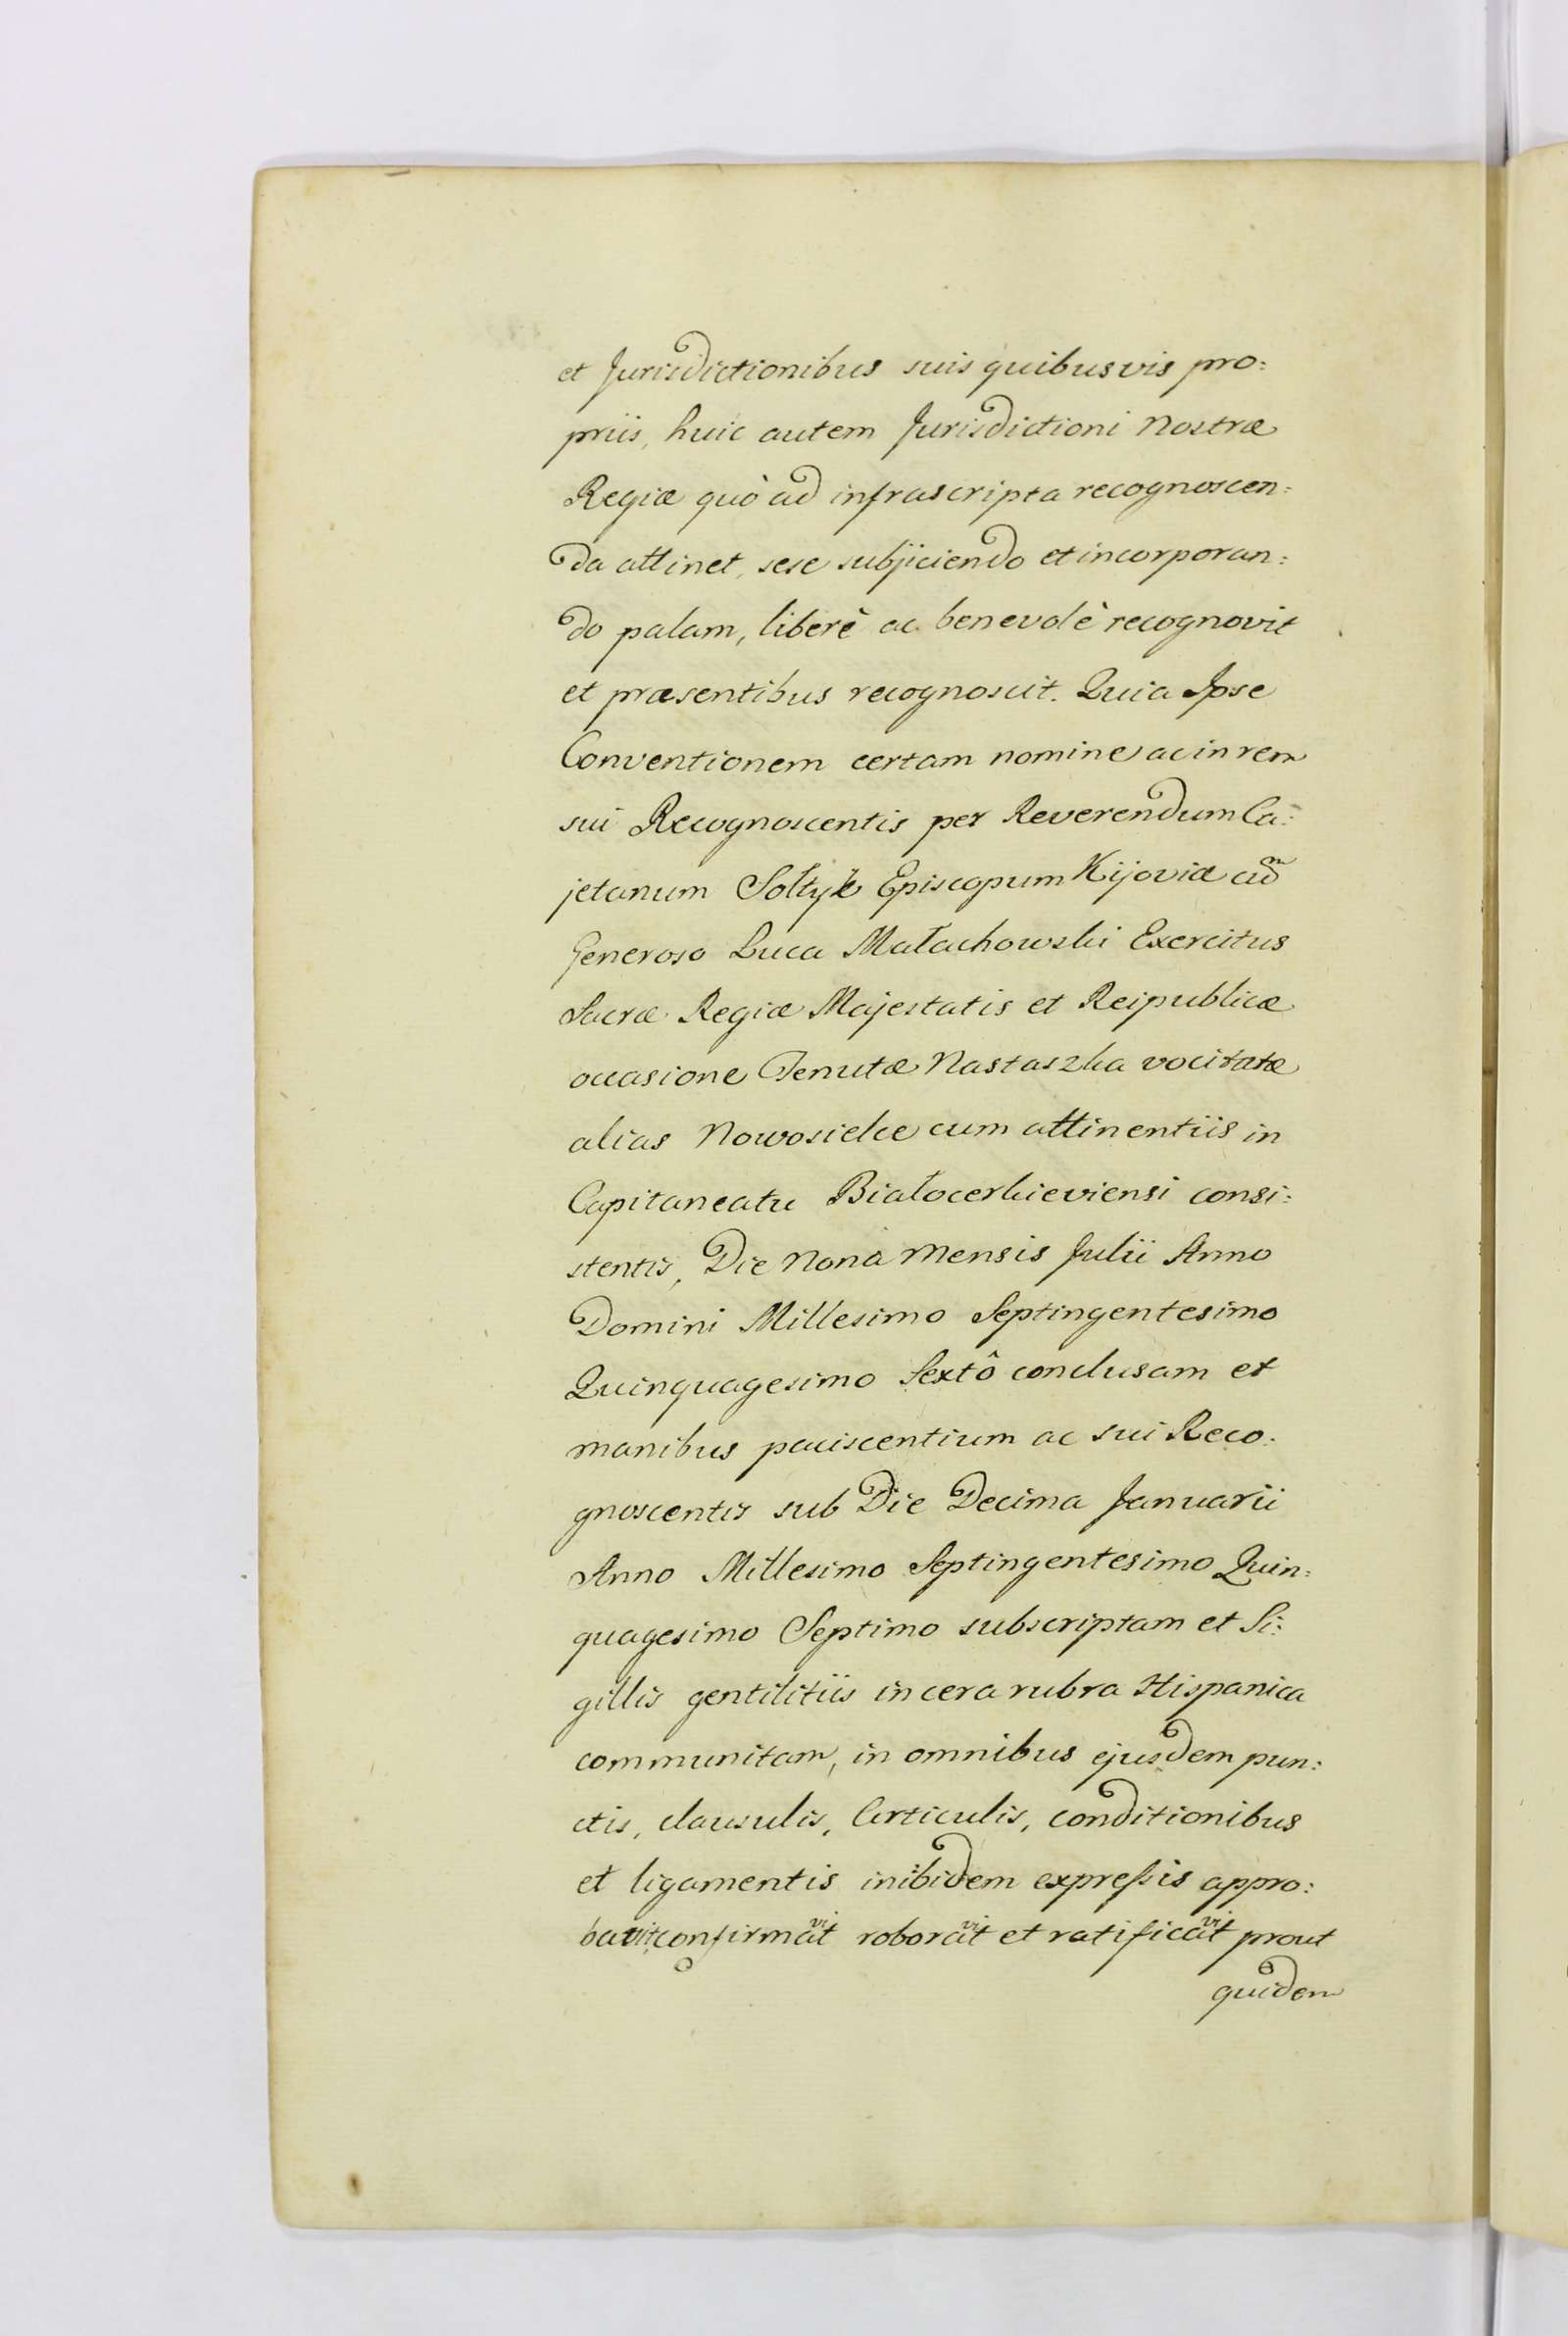 et Jurisdictionibus suis quibusvis pro:
priis, huic autem Jurisdictioni Nostræ
Regiæ quò ad infrascripta recognoscen:
da attinet, sese subjiciendo et incorporan:
do palam, liberè ac benevolè recognovit
et præsentibus recognoscit. Quia Ipse
Conventionem certam nomine ac in rem
sui Recognoscentis per Reverendum Ca:
jetanum Sołtyk Episcopum Kijoviæ cum
Generoso Luca Małachowski Exercitus
Sacræ Regiæ Majestatis et Reipublicæ
occasione Tenutæ Nastaszka vocitatæ
alias Nowosielce cum attinentiis in
Capitaneatu Białocerkieviensi consi:
stentis, Die Nonâ Mensis Julii Anno
Domini Millesimo Septingentesimo
Quinquagesimo Sextô conclusam et
manibus paciscentium ac sui Reco:
gnoscentis sub Die Decima Januarii
Anno Millesimo Septingentesimo Quin:
quagesimo Septimo subscriptam et Si:
gillis gentilitiis in cera rubra Hispanica
communitam, in omnibus ejusdem pun:
ctis, clausulis, Articulis, conditionibus
et ligamentis inibidem expreſsis appro:
bavit, confirmavit roboravit et ratificavit prout
quidem